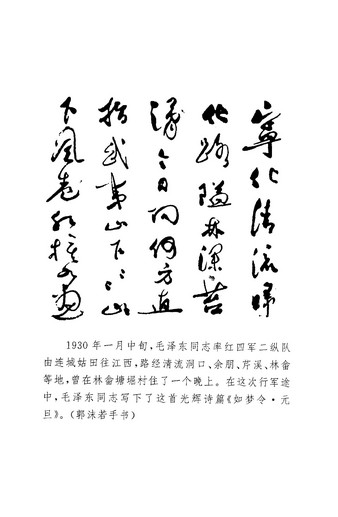 寧化清流歸
化路隘林深苔
滑今日向何方直
指武夷山下〻山
下风展红旗如画
1930年一月中旬，毛泽东同志率红四军二纵队
由连城姑田往江西，路经清流洞口、余朋、芹溪、林畲
等地，曾在林畲塘堀村住了一个晚上。在这次行军途
中，毛泽东同志写下了这首光辉诗篇《如梦令·元
旦》。（郭沫若手书）